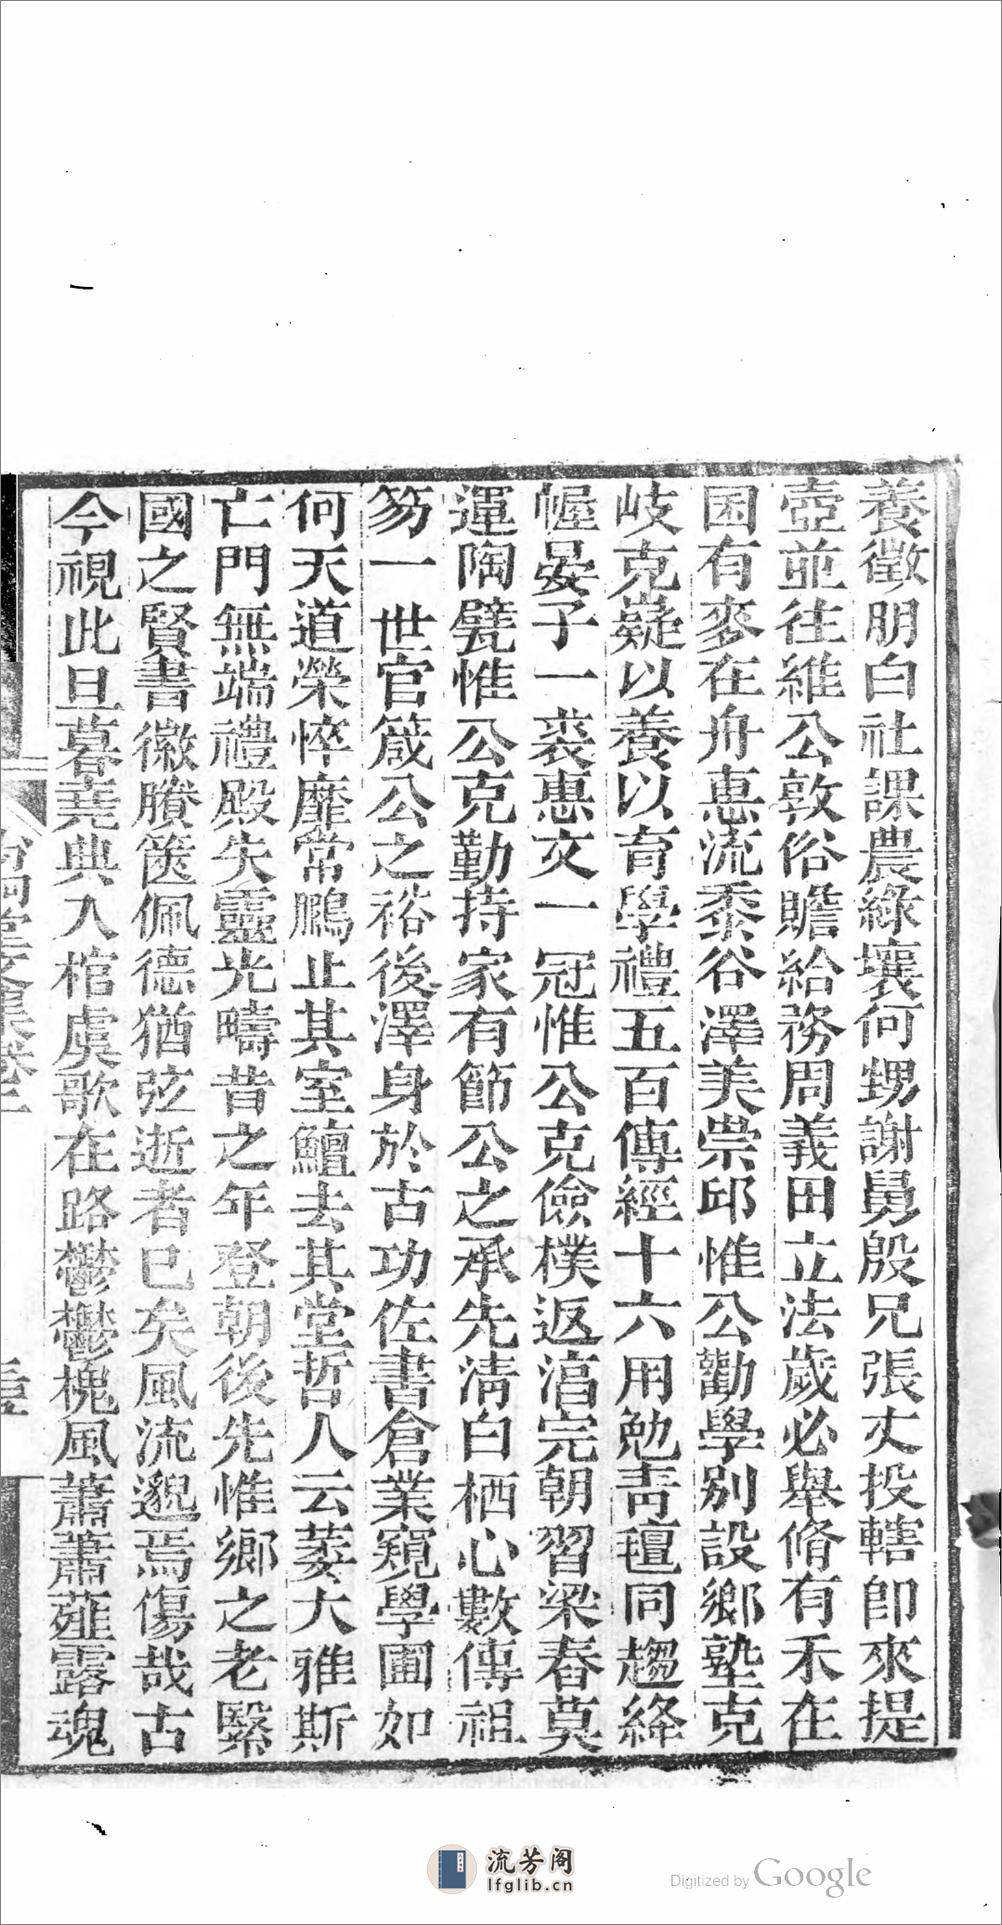 養徵朋白社課農綠壤何甥謝舅殷兄張丈投轄卽來提
壺並往維公敦俗贍給務周義田立法歲必舉脩有禾在
囷有麥在舟惠流黍谷澤美崇邱惟公勸學別設鄉塾克
岐克嶷以養以育學禮五百傳經十六用勉靑氊同趨絳
幄晏子一裘惠文一冠惟公克儉樸返湻完朝習梁舂莫
運陶甓惟公克勤持家有節公之承先淸白栖心數傳祖
笏一世官箴公之裕後澤身於古功佐書倉業窺學圃如
何天道榮悴靡常鵬止其室鱣去其堂哲人云萎大雅斯
亡門無端禮殿失靈光疇昔之年登朝後先惟鄉之老繄
國之賢書徽賸篋佩德猶弦逝者已矣風流邈焉傷哉古
今視此旦暮堯典入棺虞歌在路鬱鬱槐風蕭蕭薤露魂
文集卷三
流芳阁
lfglib.cn
Digitized by Google